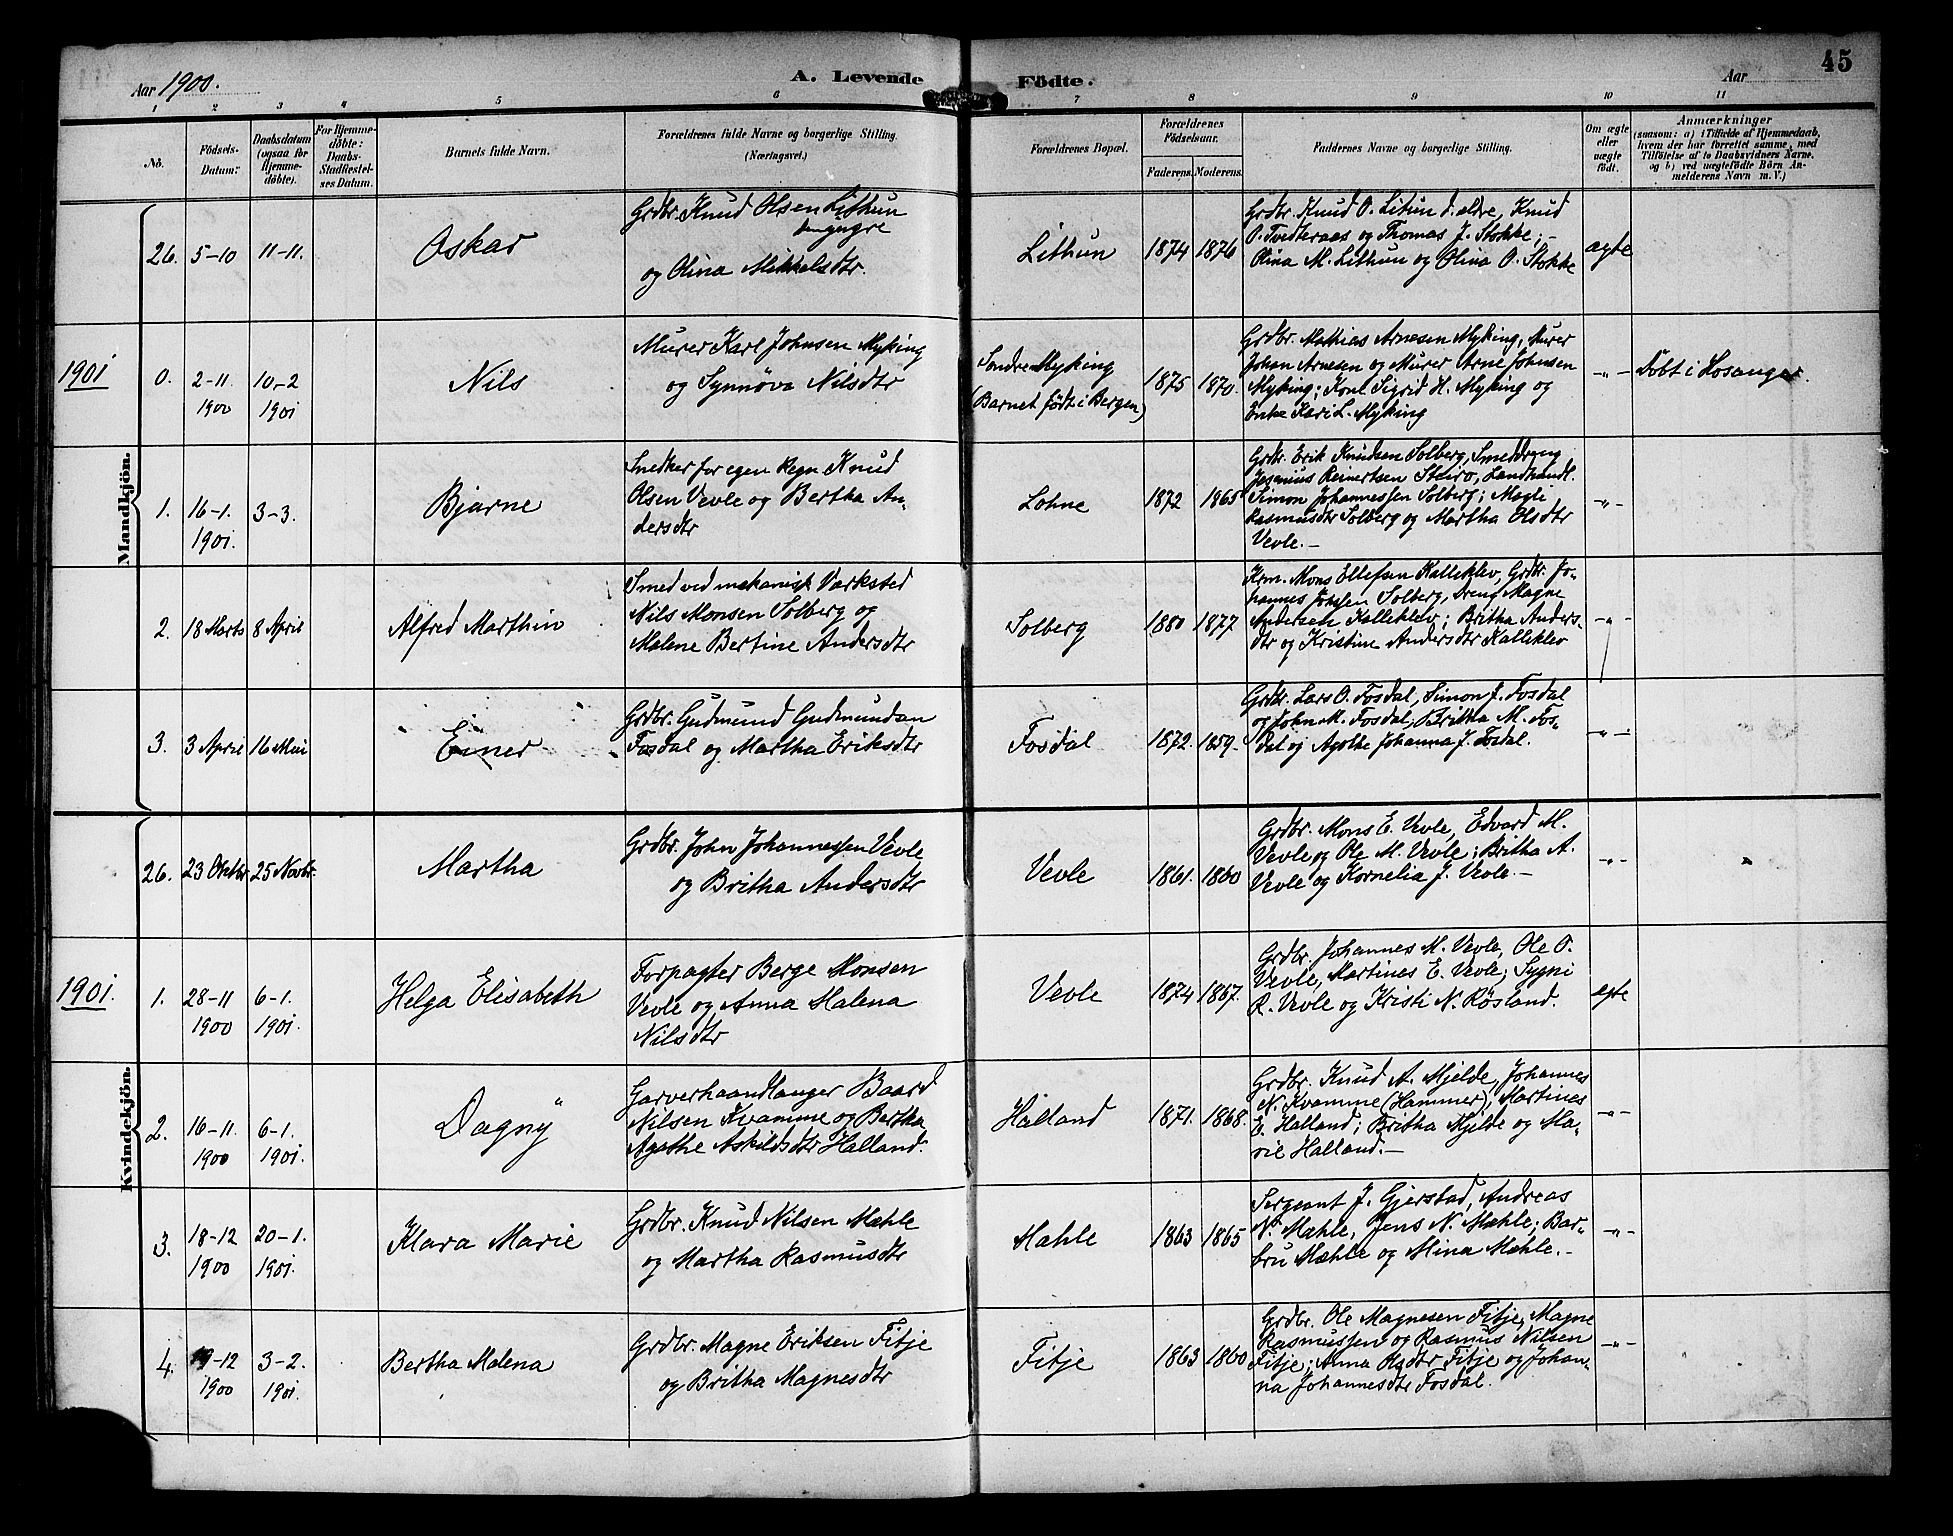 Aar 1900. A. Levende Födte. Aar 45
1 2 3 4 5 6 7 8 9 10 11
No. Födsels-Datum. Daabsdatum (ogsaa for Hjemme-döbte). For Hjemme-döbte: Daabs-Stadfæstel-ses Datum. Barnets fulde Navn. Forældrenes fulde Navne og borgerlige Stilling. (Næringsvei.) Forældrenes Bopæl. Forældrenes Födselsaar. Faderens. Moderens. Faddernes Navne og borgerlige Stilling. Om ægte eller uægte födt. Anmærkninger (saasom: a) i Tilfælde af Hjemmedaab, hvem der har forrettet samme, med Tilföielse af to Daabsvidners Navne, og b) ved uægtefödte Börn An-melderens Navn m. V.)
Mandkjön.
26. 5-10 11-11. Oskar
Grdbr. Knud Olsen Lithun
den yngre
og Olina Mikkelsdtr.
Lithun 1874 1876
Grdbr. Knud O. Lithun d. eldre, Knud
O. Tvedteraas og Thomas J. Stokke; -
Olina M. Lithun og Olina O. Stokke
ægte
1901
0. 2-11. 1900 10-2 1901 Nils
Murer Karl Johnsen Myking
og Synnøva Nilsdtr
Søndre Myking
(Barnet født i Bergen)
1875 1870.
Grdbr. Mathias Arnesen Myking, Murer
Johan Arnesen og Murer Arne Johnsen
Myking; Kone Sigrid H. Myking og
Enke Kari L. Myking
-"- Døbt i Hosanger.
1. 16-1. 1901. 3-3. Bjarne
Snedker for egen Regn Knud
Olsen Vevle og Bertha An-
dersdtr
Lohne 1872 1865
Grdbr. Erik Knudsen Solberg, Smeddreng
Rasmus Reinertsen Steiro, Landhandl.
Simon Johannessen Solberg; Magli
Rasmusdtr Solberg og Martha Olsdtr
Vevle. -
-"-
2. 18 Marts 8 April Alfred Marthin
Smed ved mekanisk Værksted
Nils Monsen Solberg og
Malene Bertine Andersdtr
Solberg 1880 1877
Krm. Mons Ellefsen Kalleklev, Grdbr. Jo-
hannes Johssen Solberg, Dreng Magne
Andersen Kalleklev; Britha Anders-
dtr og Kristine Andersdtr Kalleklev
-"-
3. 3 April 16 Mai Einer
Grdbr. Gudmund Gudmundsen
Fosdal og Martha Eriksdtr
Fosdal 1872. 1859.
Grdbr. Lars O. Fosdal, Simon J. Fosdal
og John M. Fosdal, Britha M. Fos-
dal og Agothe Johanna J. Fosdal.
-"-
Kvindekjön.
26. 23 Oktbr. 25 Novbr. Martha
Grdbr. John Johannessen Vevle
og Britha Andersdtr
Vevle 1861. 1860
Grdbr. Mons E. Vevle, Edvard M.
Vevle og Ole M. Vevle; Britha A.
Vevle og Kornelia J. Vevle. -
-"-
1901.
1. 28-11 1900 6-1. 1901. Helga Elisabeth
Forpagter Berge Monsen
Vevle og Anna Malena
Nilsdtr
Vevle 1874 1867.
Grdbr. Johannes M. Vevle, Ole O.
Vevle, Martines E. Vevle; Sygni
R. Vevle og Kristi N. Røsland.
egte
2. 16-11. 1900 6-1. 1901. Dagny
Garverhaandlanger Baard
Nilsen Kvamme og Bertha
Agathe Askildsdtr Halland.
Halland 1871. 1868.
Grdbr. Knud A. Mjelde, Johannes
N. Kvamme (Hammer), Martines
E. Halland; Britha Mjelde og Ma-
rie Halland. -
-"-
3. 18-12 1900 20-1. 1901. Klara Marie
Grdbr. Knud Nilsen Mæhle
og Martha Rasmusdtr
Mæhle 1863 1865
Sergeant J. Gjerstad, Andreas
N. Mæhle, Jens N. Mæhle; Bar-
bru Mæhle og Mina Mæhle. -
-"-
4. -12 1900 3-2. 1901. Bertha Malena
Grdbr. Magne Eriksen Fitje
og Britha Magnesdtr
Fitje 1863 1860
Grdbr. Ole Magnesen Fitje, Magne
Rasmussen og Rasmus Nilsen
Fitje; Anna Olsdtr Fitje og Johan-
na Johannesdtr Fosdal.
-"-